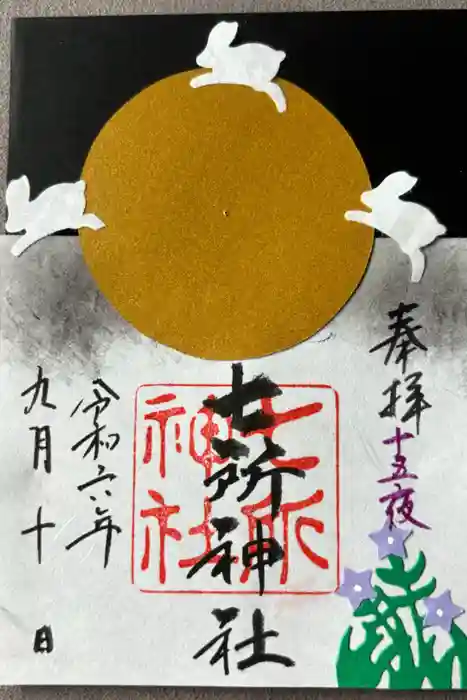 奉拝
十五夜
七所神社
七所神社
令和六年
九月十 日